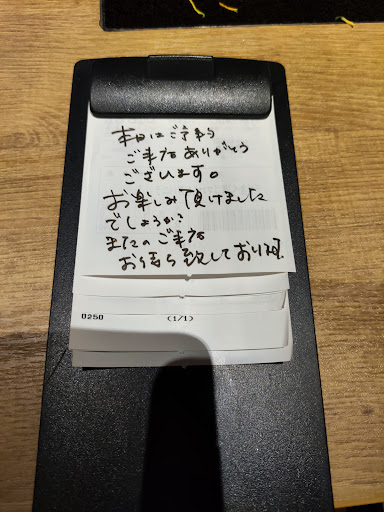 本日はご予約
ご来店ありがとう
ございます。
お楽しみ頂けました
でしょうか?
またのご来店
お待ち致しており〼。
0250 (1/1)